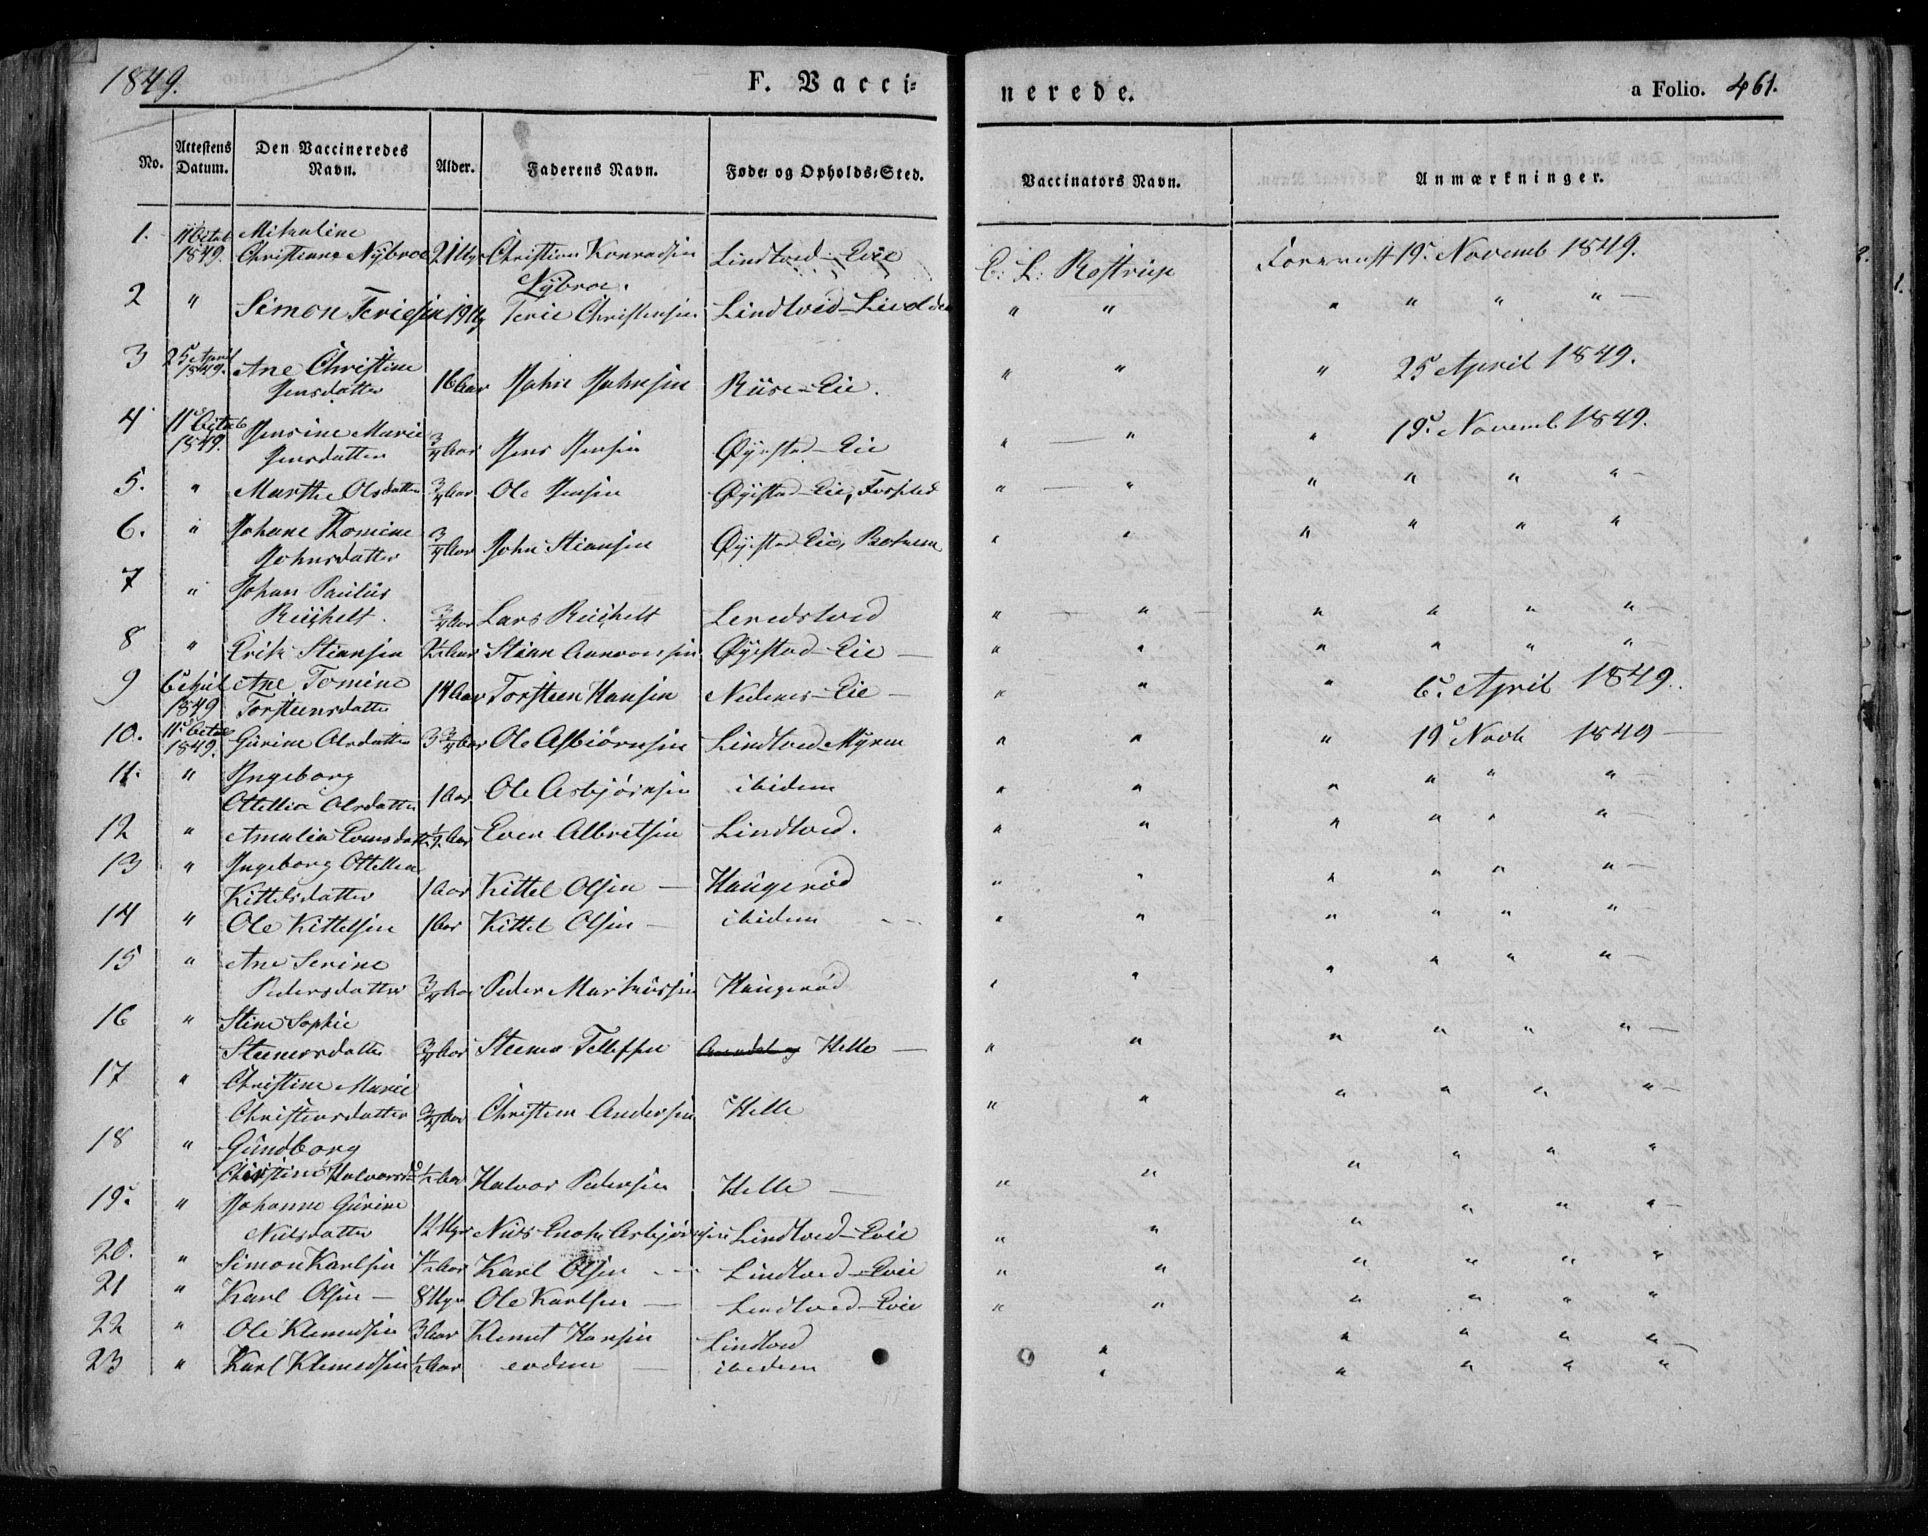 1849.
F. Vacci-
nerede.
a Folio. 461.
No.
Attestens Datum.
Den Vaccineredes Navn.
Alder.
Faderens Navn.
Føde- og Opholds-Sted.
Vaccinators Navn.
Anmærkninger.
1. 11 Octob Mikaline
1849. Christiane Nybroe 21 Uger Christian Konradsen Lindtved-Eie C: L: Rostrup Forevist 19. Novemb 1849.
Nybroe.
2 " Simon Teriesen 19 Ug Terie Christensen Lindtved " " " " " "
3 25 April Ane Christine
1849. Jensdatter 16 Aar John Johnsen Riise-Eie. " " " 25 April 1849.
4 11 Octob Jensine Marie
1849. Jensdatter 3/4 Aar Jens Jensen Øyestad-Eie " " " 19. Novemb 1849.
5. " Marthe Olsdatter 3/4 Aar Ole Jensen Øyestad-Eie, " " " " " "
6. " Johane Thomine
Johnsdatter 3/4 Aar John Stiansen Øyestad-Eie, " " " " " "
7 " Johan Paulus
Reichelt. 3/4 Aar Lars Reichelt Leredstved " " " " " "
8 " Erik Stiansen 2½ Aar Stian Aanonsen Øyestad-Eie " " " " " "
9 6 April Ane Tomine
1849 Torsteensdatter 14 Aar Torsteen Hansen Nedenes-Eie " " " 6. April 1849.
10. 11 Octob
1849. Gurine Olsdatter 3 3/4 Aar Ole Asbiørnsen Lindtved Myren " " " 19 Novb 1849
11. " Ingeborg
Otellia Olsdatter 1 Aar Ole Asbjørnsen ibidem " " " " " "
12 " Amalia Evensdatter ½ Aar Even Albretsen Lindtved. " " " " " "
13 " Ingeborg Otellia
Kittelsdatter 1 Aar Kittel Olsen Haugerød " " " " " "
14 " Ole Kittelsen 1 Aar Kittel Olsen ibidem " " " " " "
15 " Ane Serine
Pedersdatter 3/4 Aar Peder Markussen Haugerød " " " " " "
16 " Stine Sophie
Steenersdatter 3/4 Aar Steener Tellefsen Arendal og Helle " " " " " "
17 " Christine Marie
Christensdatter 3/4 Aar Christen Andersen Helle " " " " " "
18 " Gundborg
Christine Halvorsd ½ Aar Halvor Pedersen Helle " " " " " "
19. " Johanne Gurine
Nielsdatter 12 Uger Niels Enok Asbjørnsen Lindtved-Eie " " " " " "
20. " Simon Karlsen 1½ Aar Karl Olsen Lindtved-Eie " " " " " "
21 " Karl Olsen 8 Uger Ole Karlsen Lindtved-Eie " " " " " "
22 " Ole Klemedsen 3 Aar Klemet Hansen Lindtved " " " " "
23 " Karl Klemedsen ½ Aar eodem ibidem " " " " "